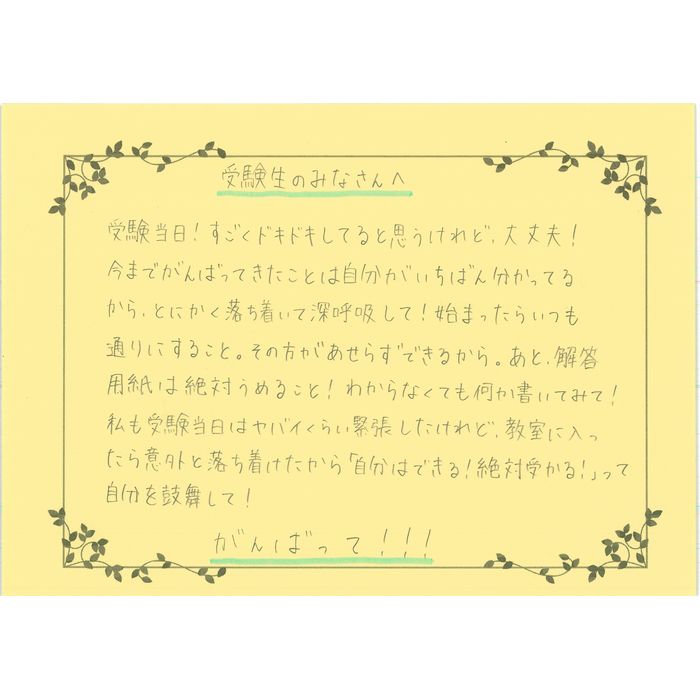 受験生のみなさんへ
受験当日！すごくドキドキしてると思うけれど、大丈夫！
今までがんばってきたことは自分がいちばん分かってる
から、とにかく落ち着いて深呼吸して！始まったらいつも
通りにすること。その方があせらずできるから。あと、解答
用紙は絶対うめること！わからなくても何か書いてみて！
私も受験当日はヤバイくらい緊張したけれど、教室に入っ
たら意外と落ち着けたから「自分はできる！絶対受かる！」って
自分を鼓舞して！
がんばって！！！